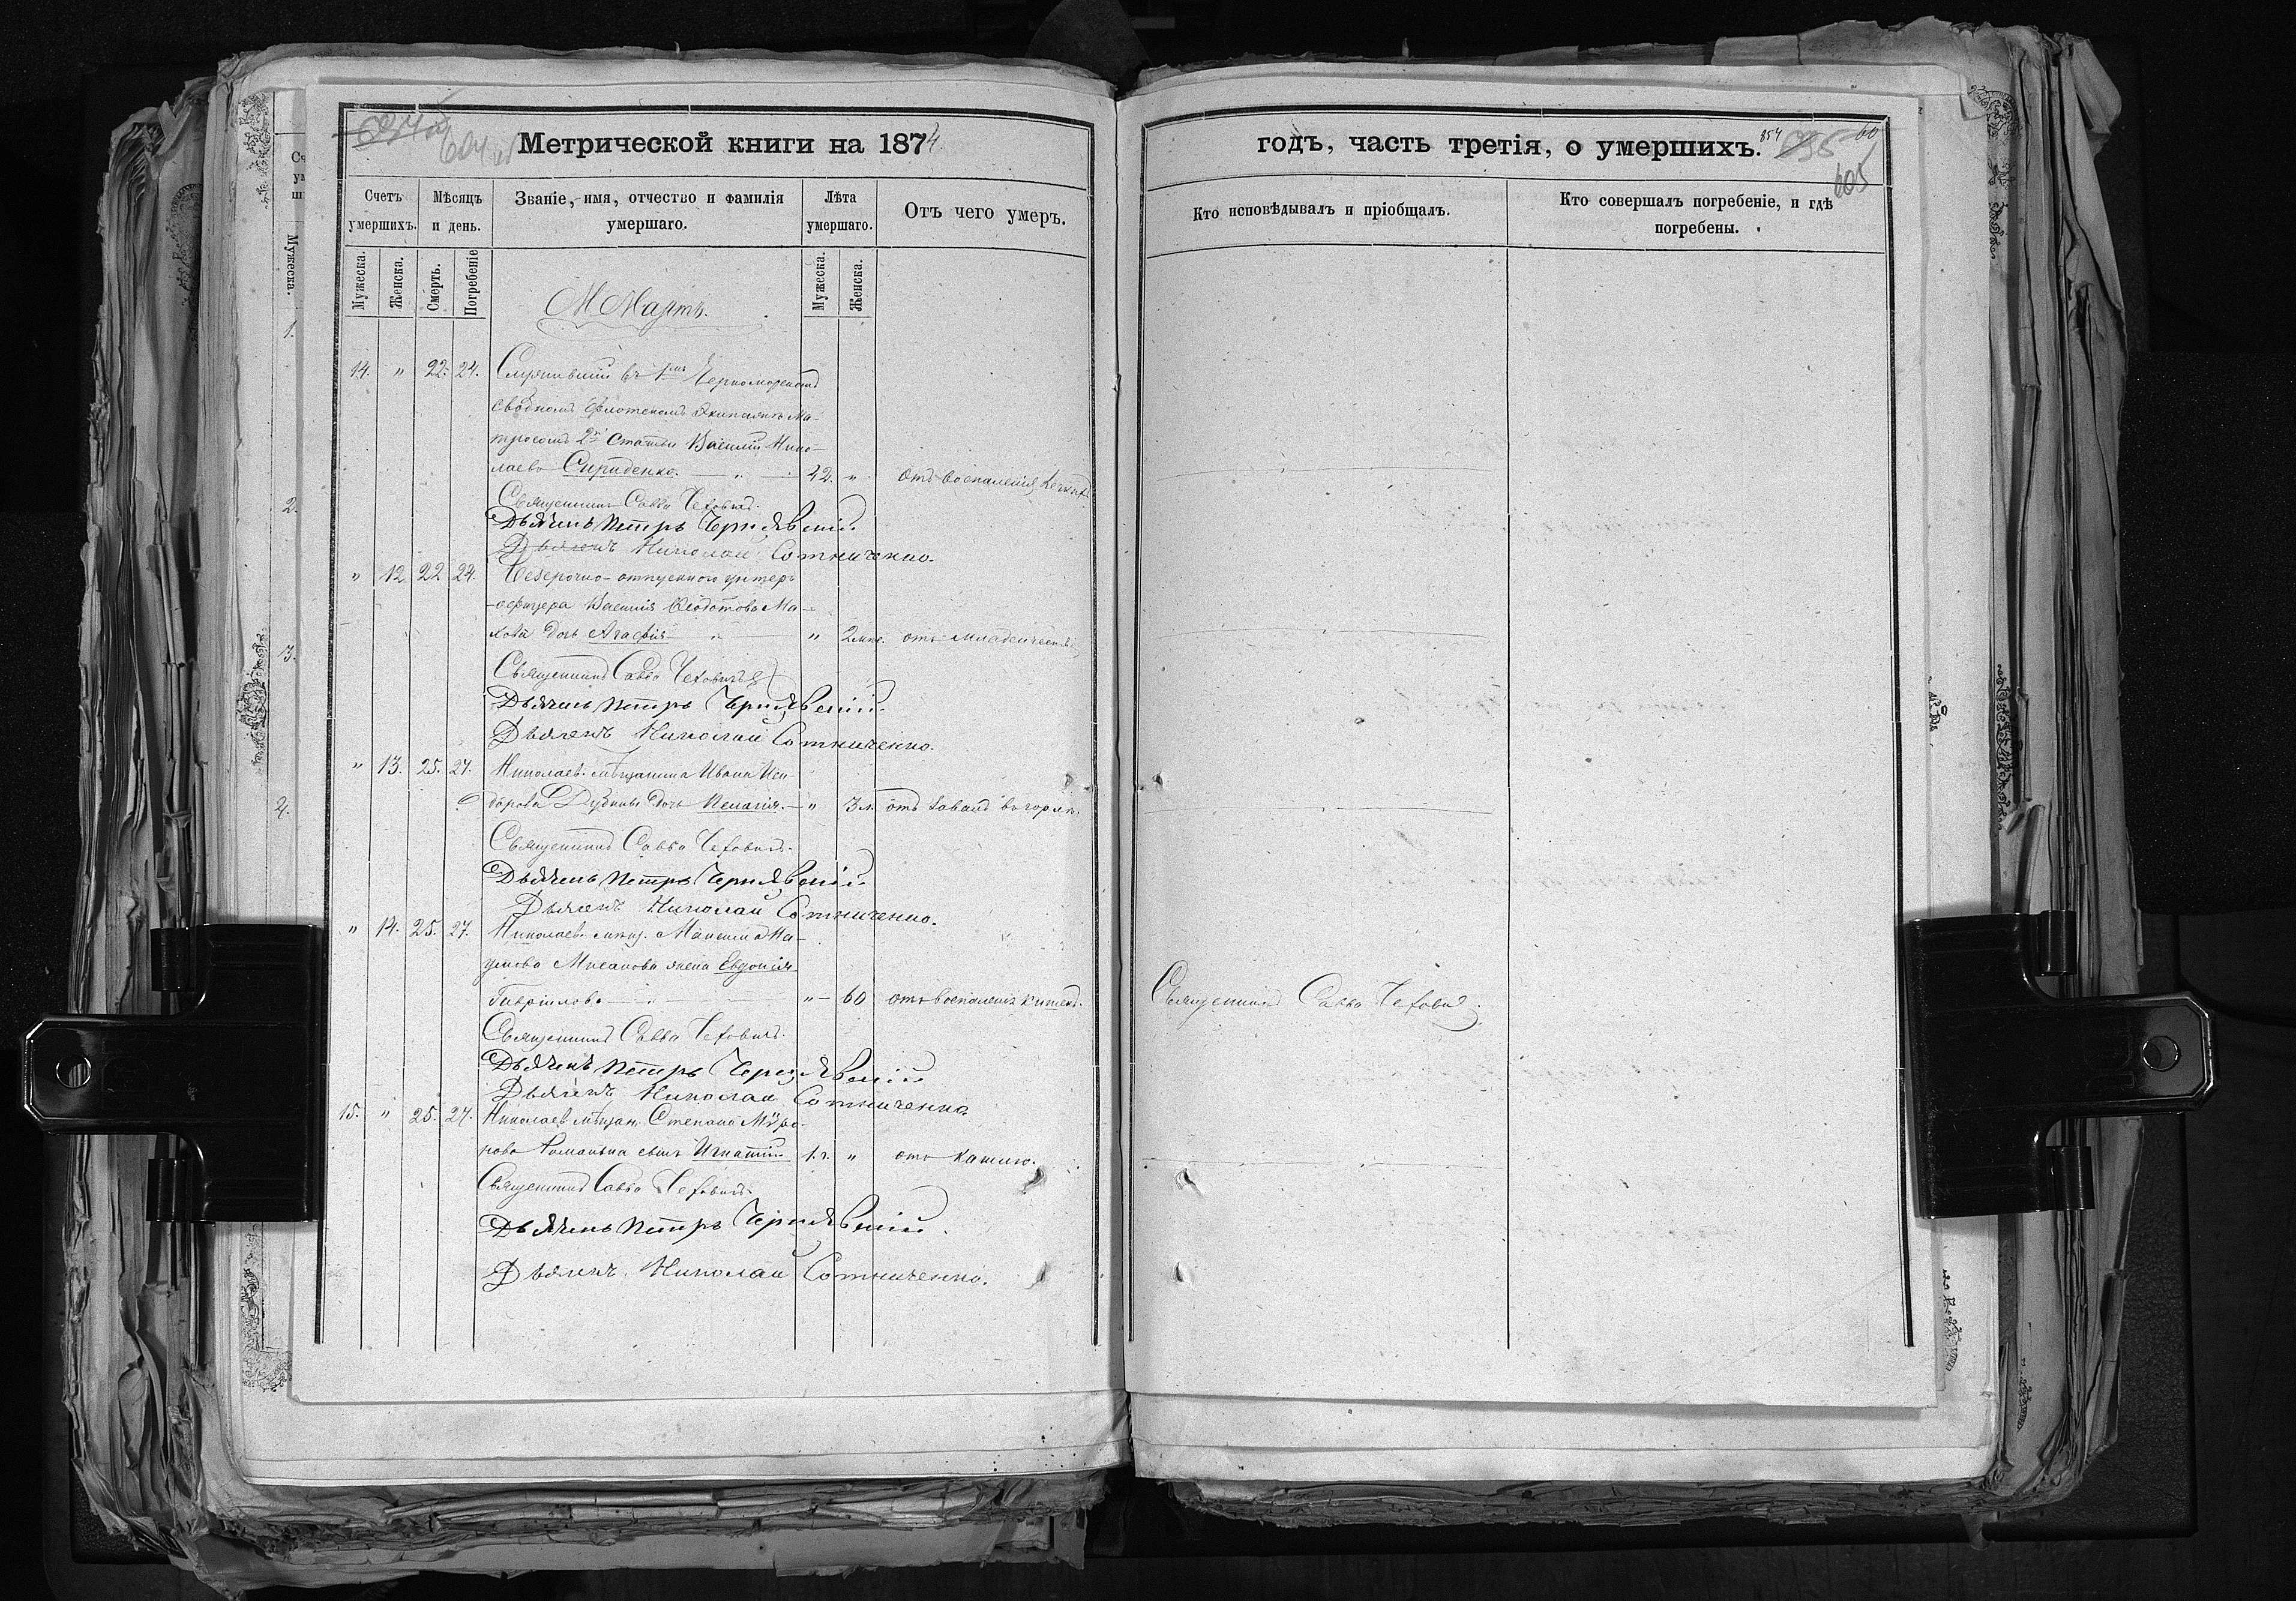 Метрической книги на 1874
годъ, часть третія, о умершихъ.
854
60
605
Счетъ умершихъ.
Мѣсяцъ и день.
Званіе, имя, отчество и фамилія умершаго.
Лѣта умершаго.
Отъ чего умеръ.
Кто исповѣдывалъ и пріобщалъ.
Кто совершалъ погребеніе, и гдѣ погребены.
Мужеска.
Женска.
Смерть.
Погребеніе
Мужеска.
Женска.
Мартъ.
14. " 22. 24. Служившій въ 1мъ Черноморскомъ
сводномъ Флотскомъ Экипажѣ Ма-
тросомъ 2й статьи Василій Нико-
лаевъ Спириденко. 42. " отъ воспаленія легкихъ
Священникъ Савва Чехович.
Дьячекъ Петръ Чернявскій
Дьячекъ Николай Сотниченко.
" 12 22 24. Безсрочно-отпускного унтеръ
-офицера Василія Ѳедотова Ма-
хова дочь Агафія " 2 мѣс. отъ младенческой
Священникъ Савва Чеховичъ
Дьячекъ Петръ Чернявскій.
Дьячекъ Николай Сотниченко.
" 13. 25. 27. Николаев. мѣщанина Ивана Иси-
дорова дочь Пелагія. " 3 л. отъ въ горлѣ.
Священникъ Савва Чеховичъ.
Дьячекъ Петръ Чернявскій
Дьячекъ Николай Сотниченко.
" 14. 25. 27. Николаев. мѣщ. Максима На-
умова жена Евдокія
Гаврилова " 60 отъ воспаленія кишекъ.
Священникъ Савва Чеховичъ.
Священникъ Савва Чеховичъ.
Дьячекъ Петръ Чернявскій
Дьячекъ Николай Сотниченко.
15. " 25. 27. Николаев. мѣщан. Степана
сынъ Игнатій 1 г. " отъ кашлю.
Священникъ Савва Чеховичъ.
Дьячекъ Петръ Чернявскій.
Дьячекъ Николай Сотниченко.
1.
2.
3.
4.